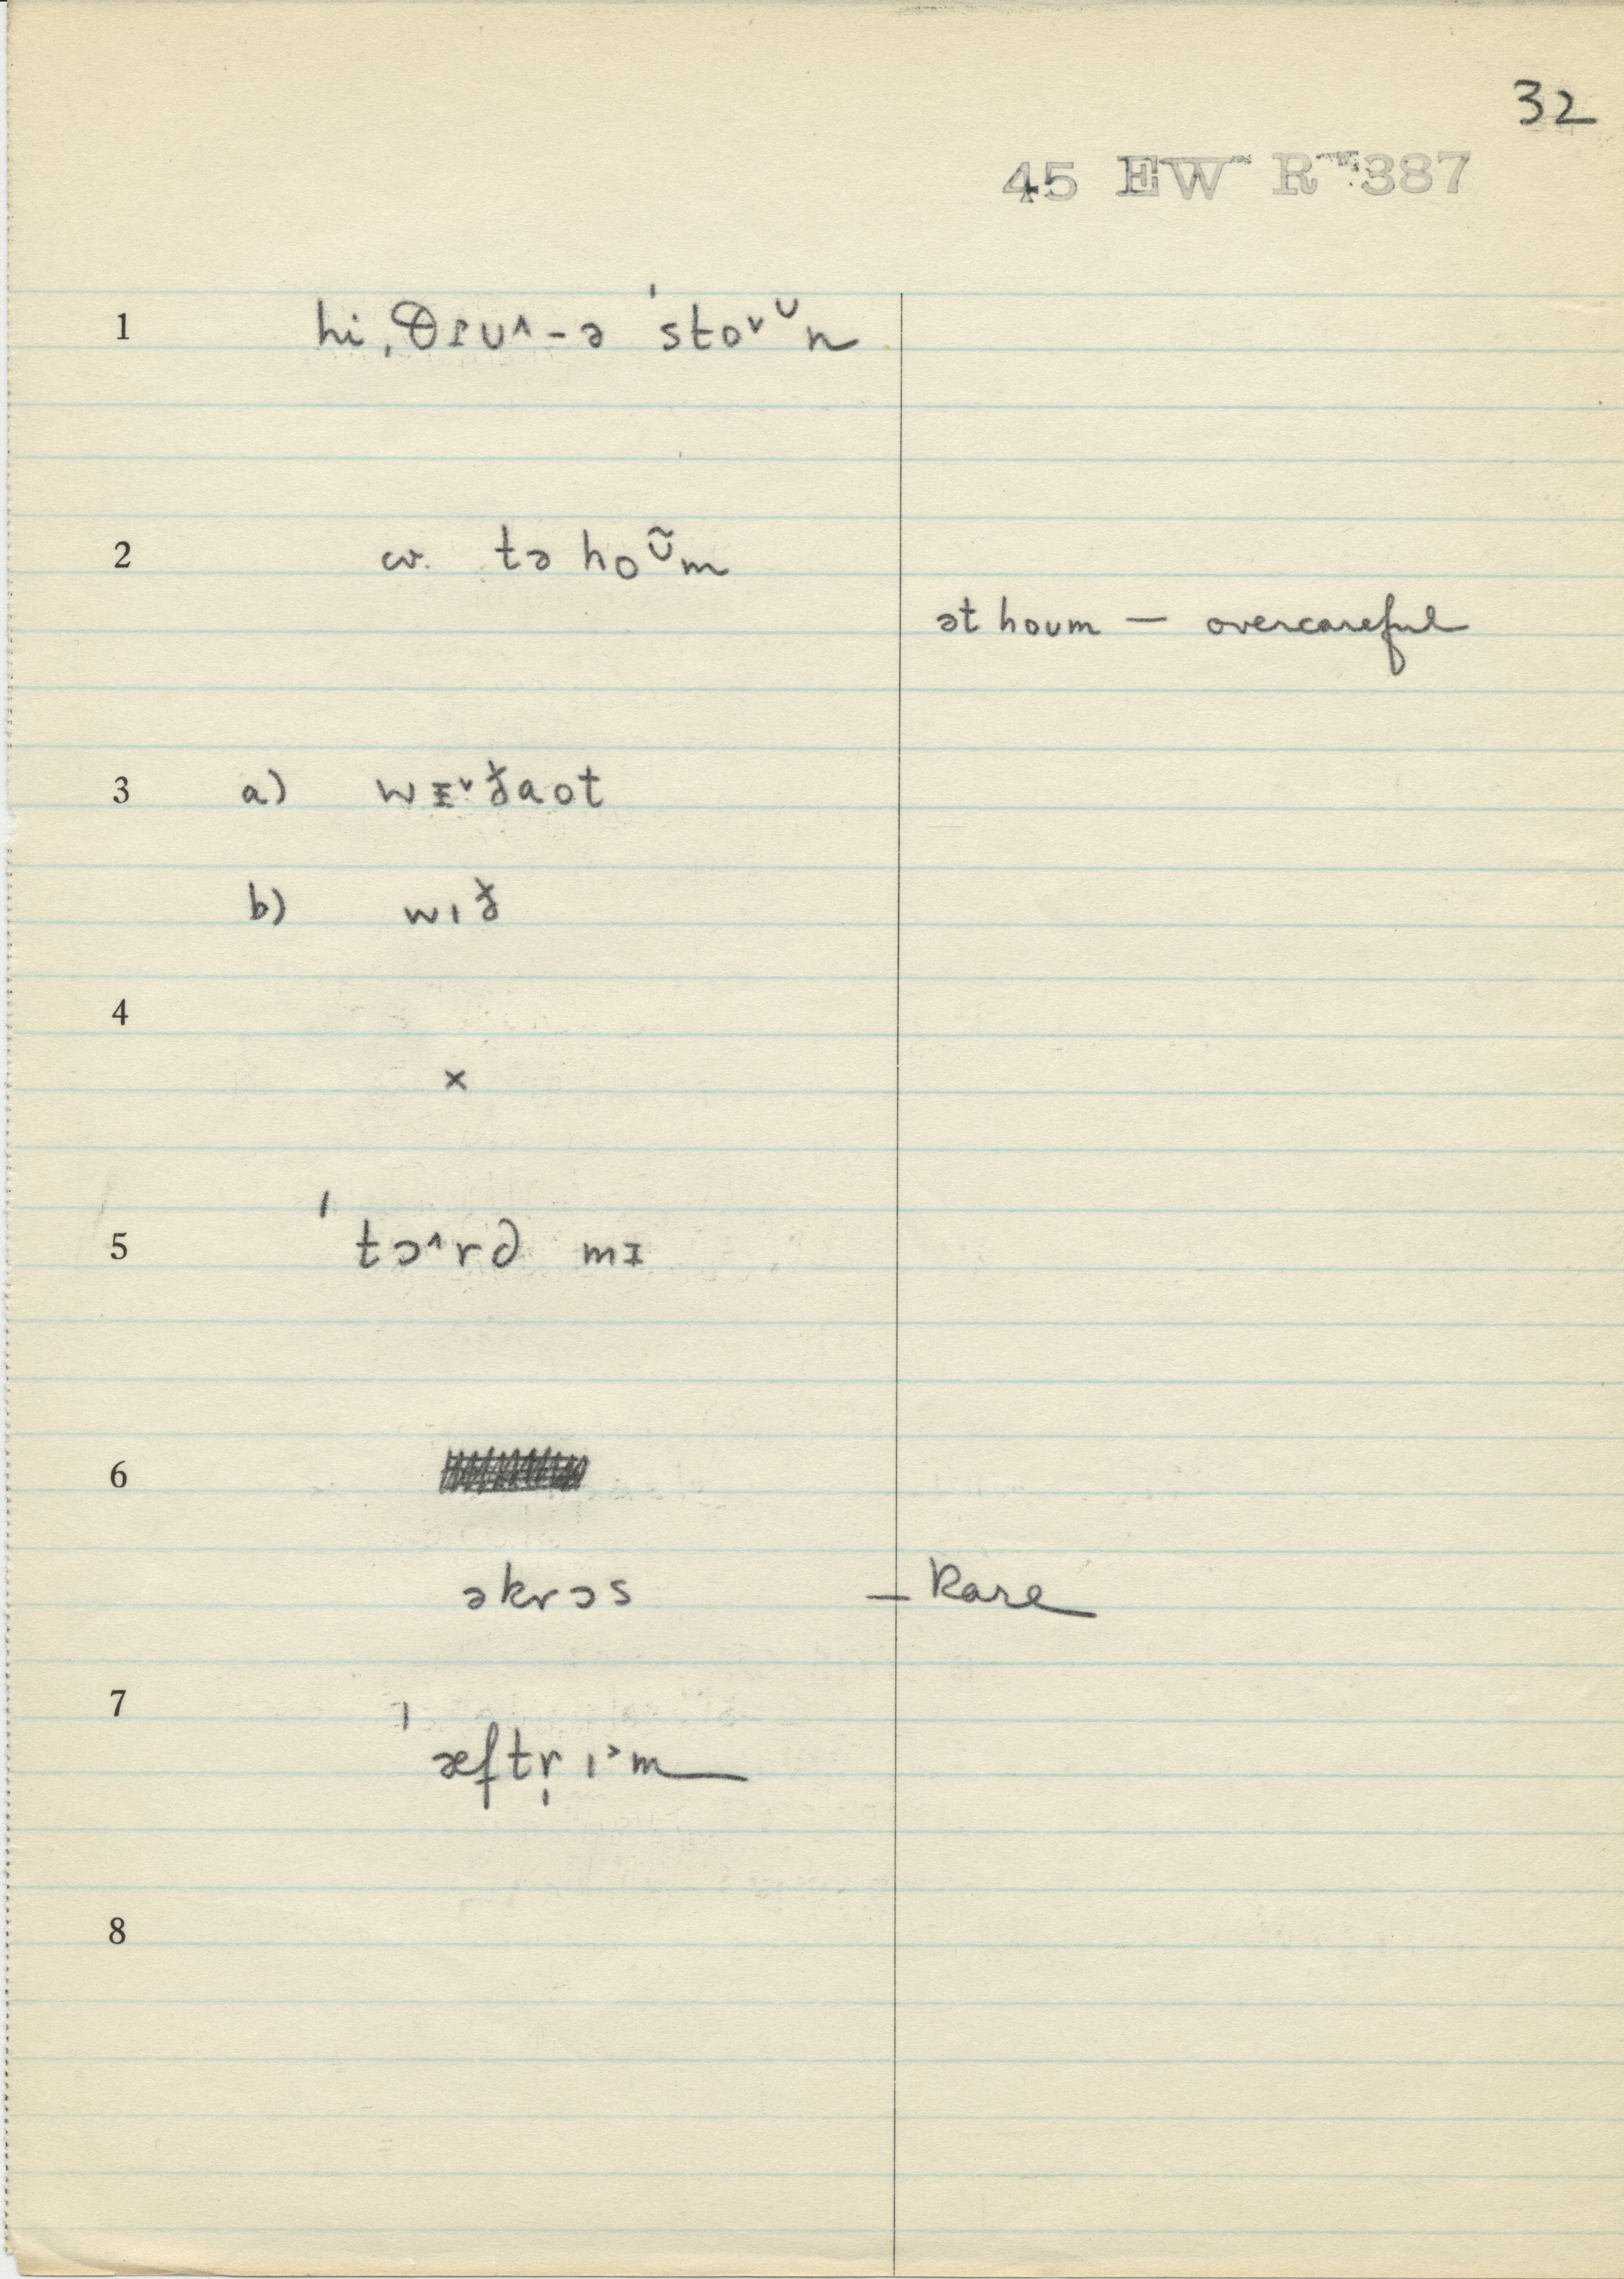 32
45 EW R 387
1 hi ˌθɪu^-ə ˈstoᵛᶸn
2 cv. tə hoᶸ̃m
ət houm — overcareful
3 a) wɪᵛðaot
b) wið
4
×
5 ˈtɔ^rd mɪ
6
əkrɔs — Rare
7
ˈæftr̩ ɪ˃m
8